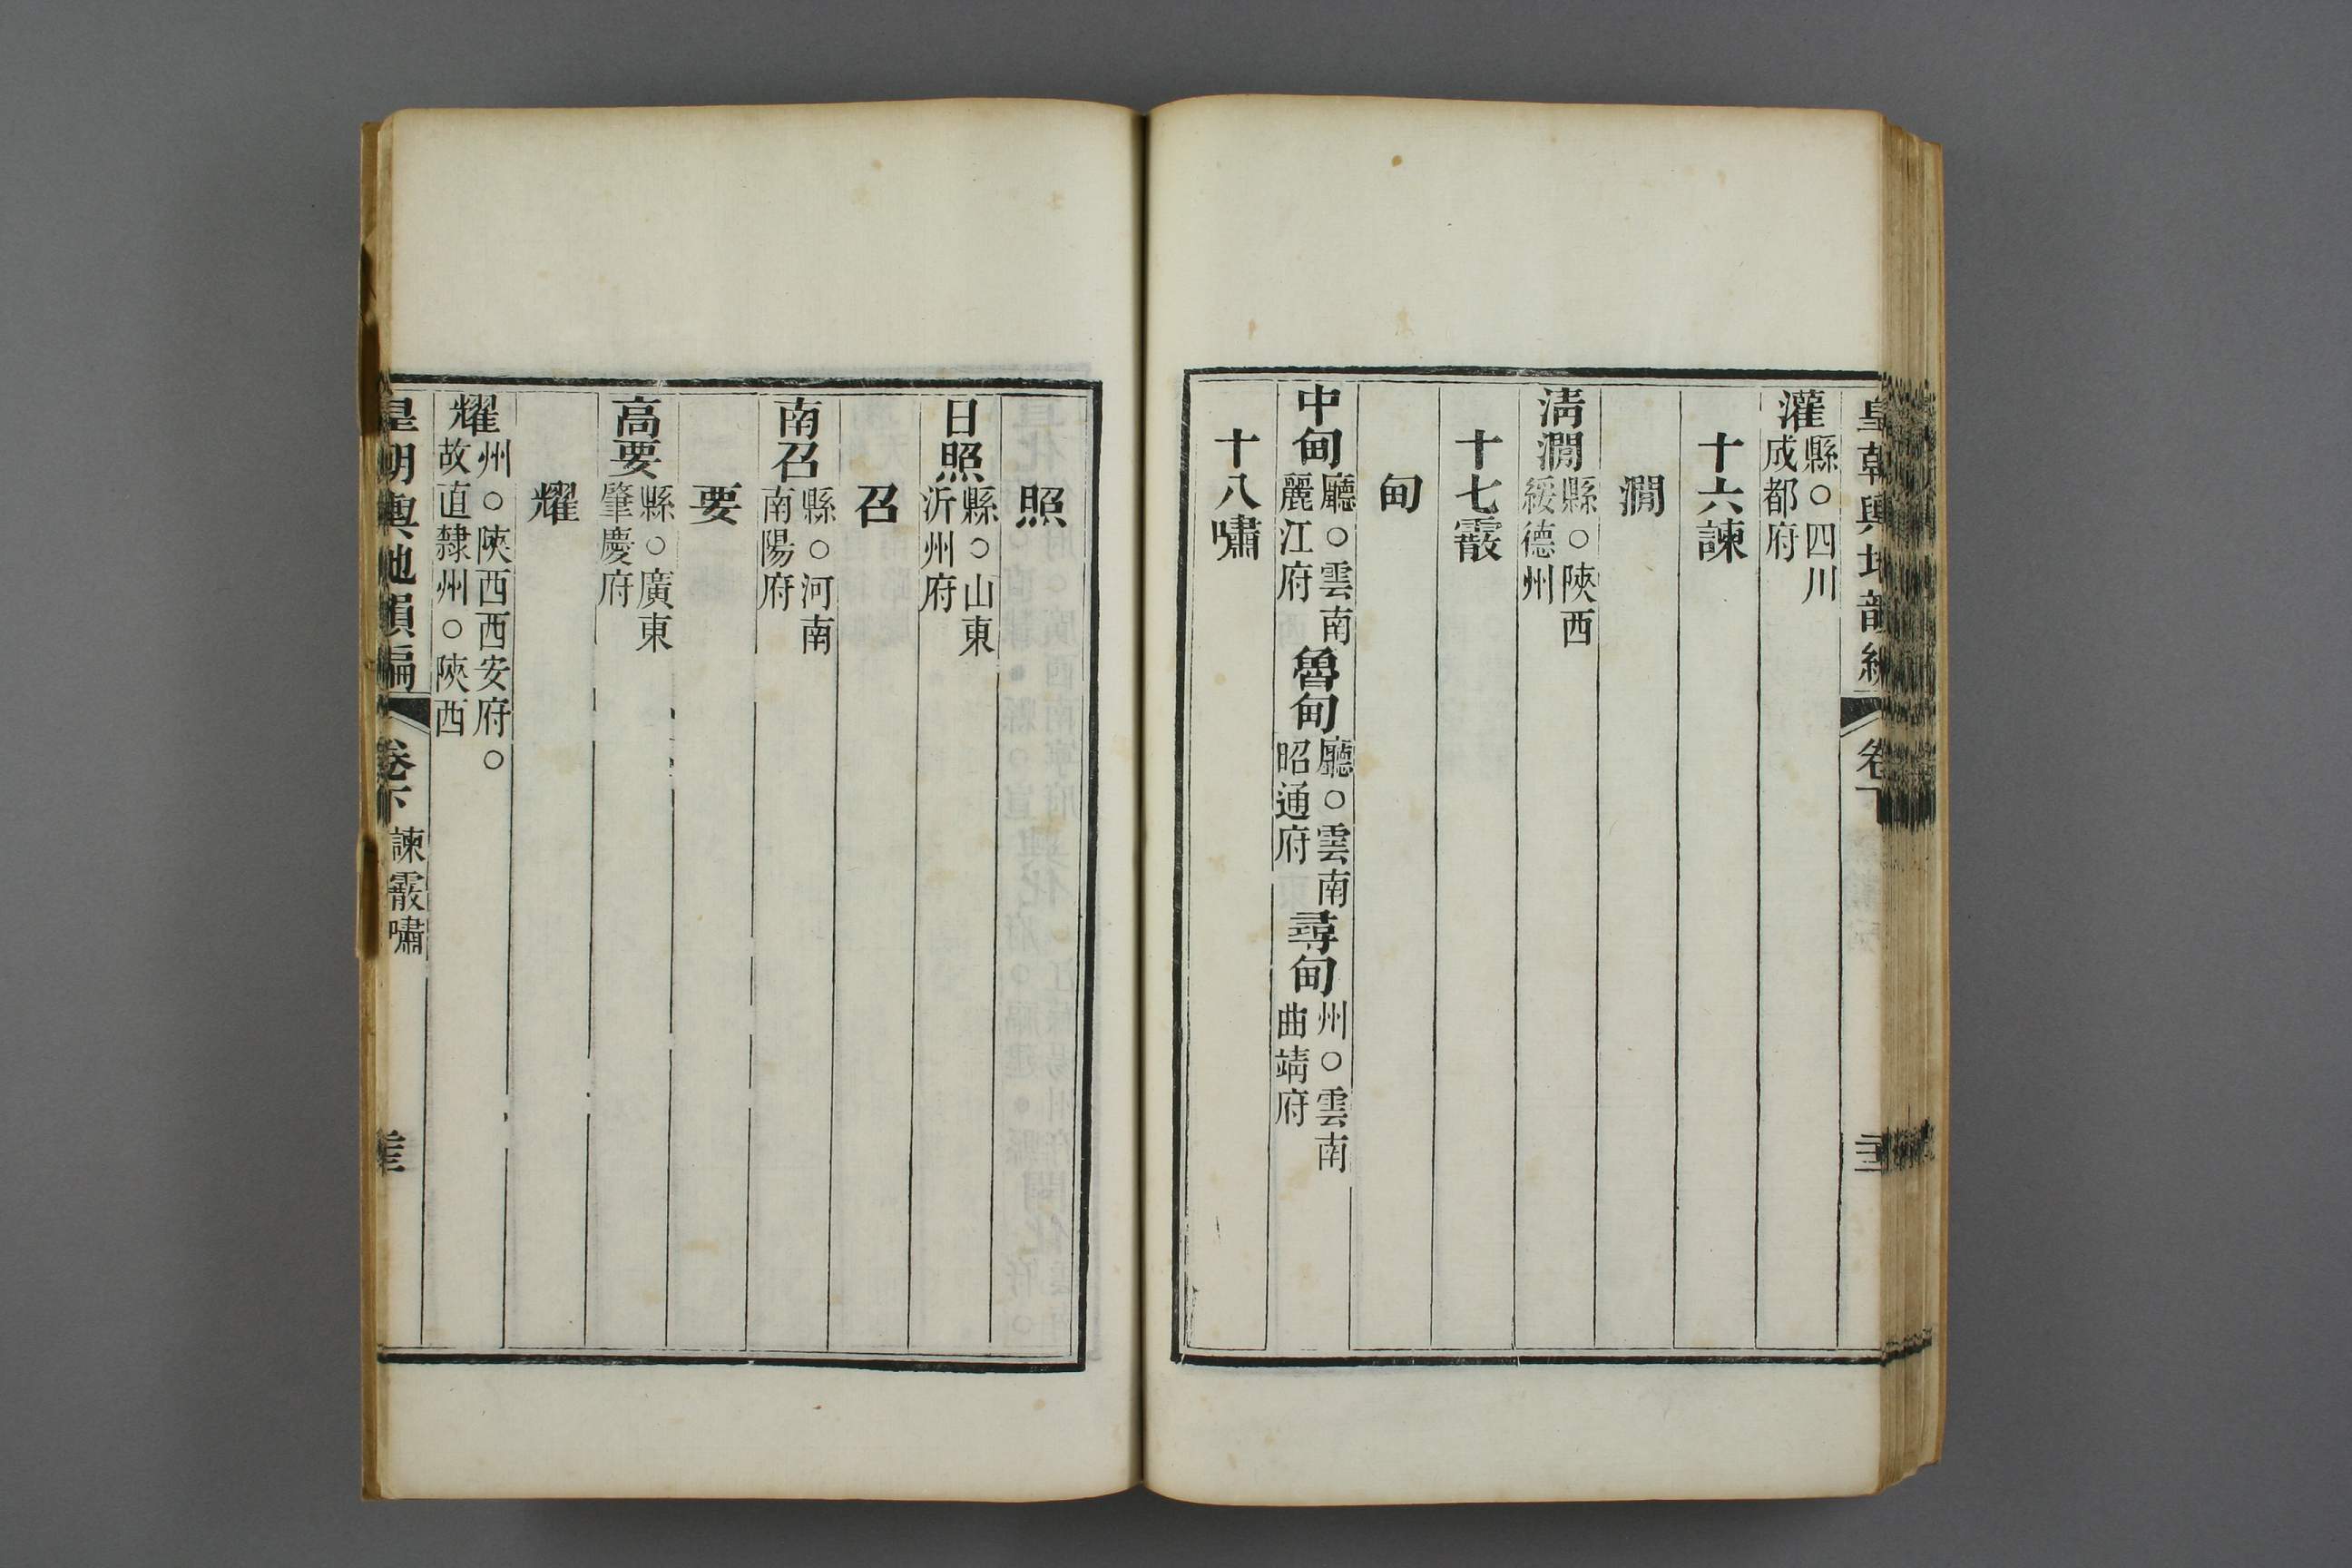 皇朝輿地韻編 卷下
灌縣○四川成都府
十六諫
澗
淸澗縣○陝西綏德州
十七霰
甸
中甸廳○雲南麗江府 魯甸廳○雲南昭通府 尋甸州○雲南曲靖府
十八嘯
照
日照縣○山東沂州府
召
南召縣○河南南陽府
要
高要縣○廣東肇慶府
耀
耀州○陝西西安府○故直隸州○陝西
皇朝輿地韻編 卷下 諫霰嘯